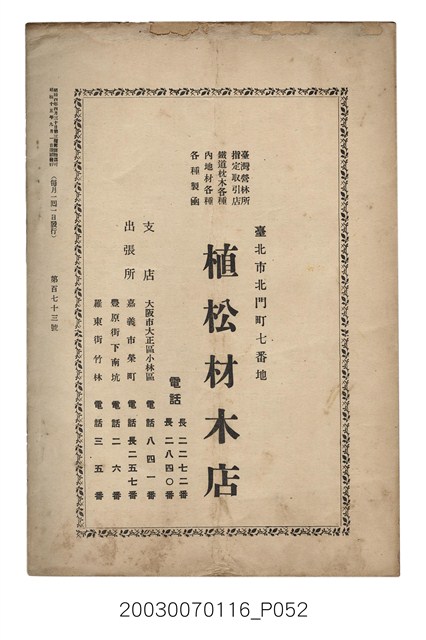 臺灣營林所
指定取引店
鐵道枕木各種
內地材各種
各種製函
臺北市北門町七番地
植松材木店
電話 長二二七二番
長二八四〇番
支店 大阪市大正區小林區 電話八四一番
出張所 嘉義市榮町 電話長二五七番
豐原街下南坑 電話二六番
羅東街竹林 電話三五番
(每月一回一日發行)
第百七十三號
20030070116_P052